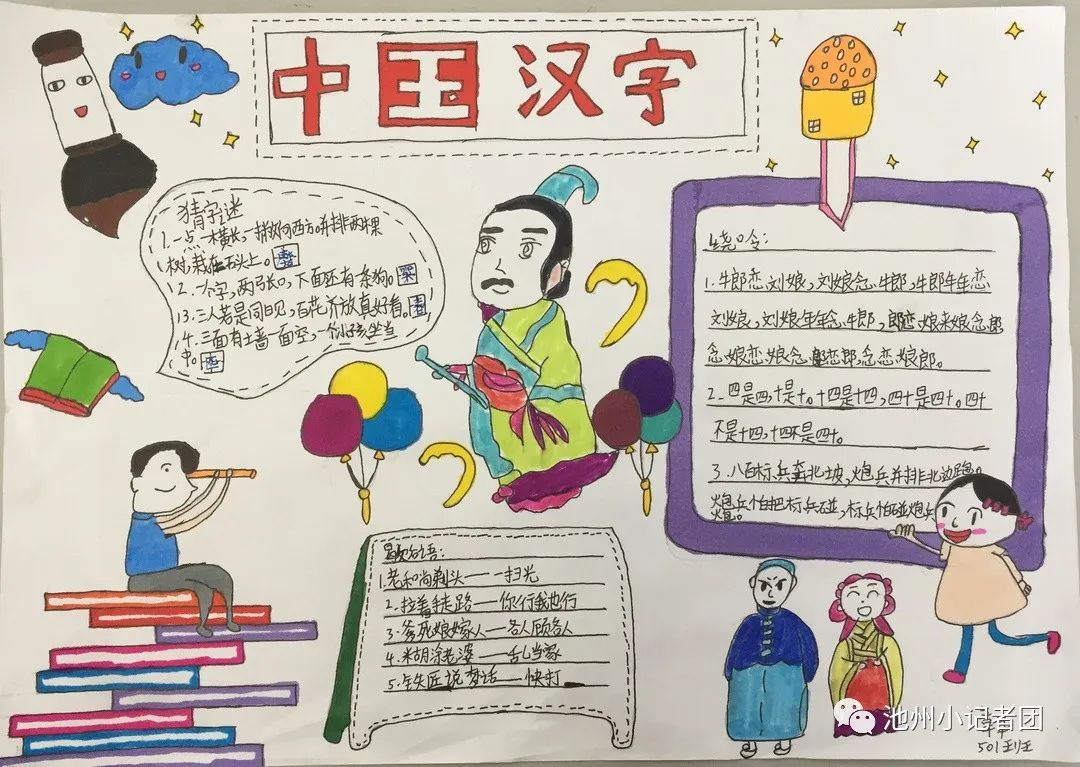 中国汉字
猜字谜
1.一点一横长,一撇向西方。并排两棵
树,栽在石头上。磨
2.一个字,两张口,下面还有一条狗。哭
3.三人若是同日见,百花齐放真好看。春
4.三面有土墙一面空,一个小孩坐当
中。
绕口令:
1.牛郎恋刘娘,刘娘念牛郎,牛郎年年恋
刘娘,刘娘年年念牛郎,郎恋娘来娘念郎
念娘恋娘念郎恋郎,念恋娘郎。
2.四是四,十是十。十四是十四,四十是四十。四十
不是十四,十四不是四十。
3.八百标兵奔北坡,炮兵并排北边跑。
炮兵怕把标兵碰,标兵怕碰炮兵
歇后语:
1.老和尚剃头——一扫光
2.拉着手走路——你行我也行
3.爹死娘嫁人——各人顾各人
4.糊涂老婆——乱当家
5.铁匠说梦话——快打
池州小记者团
501班